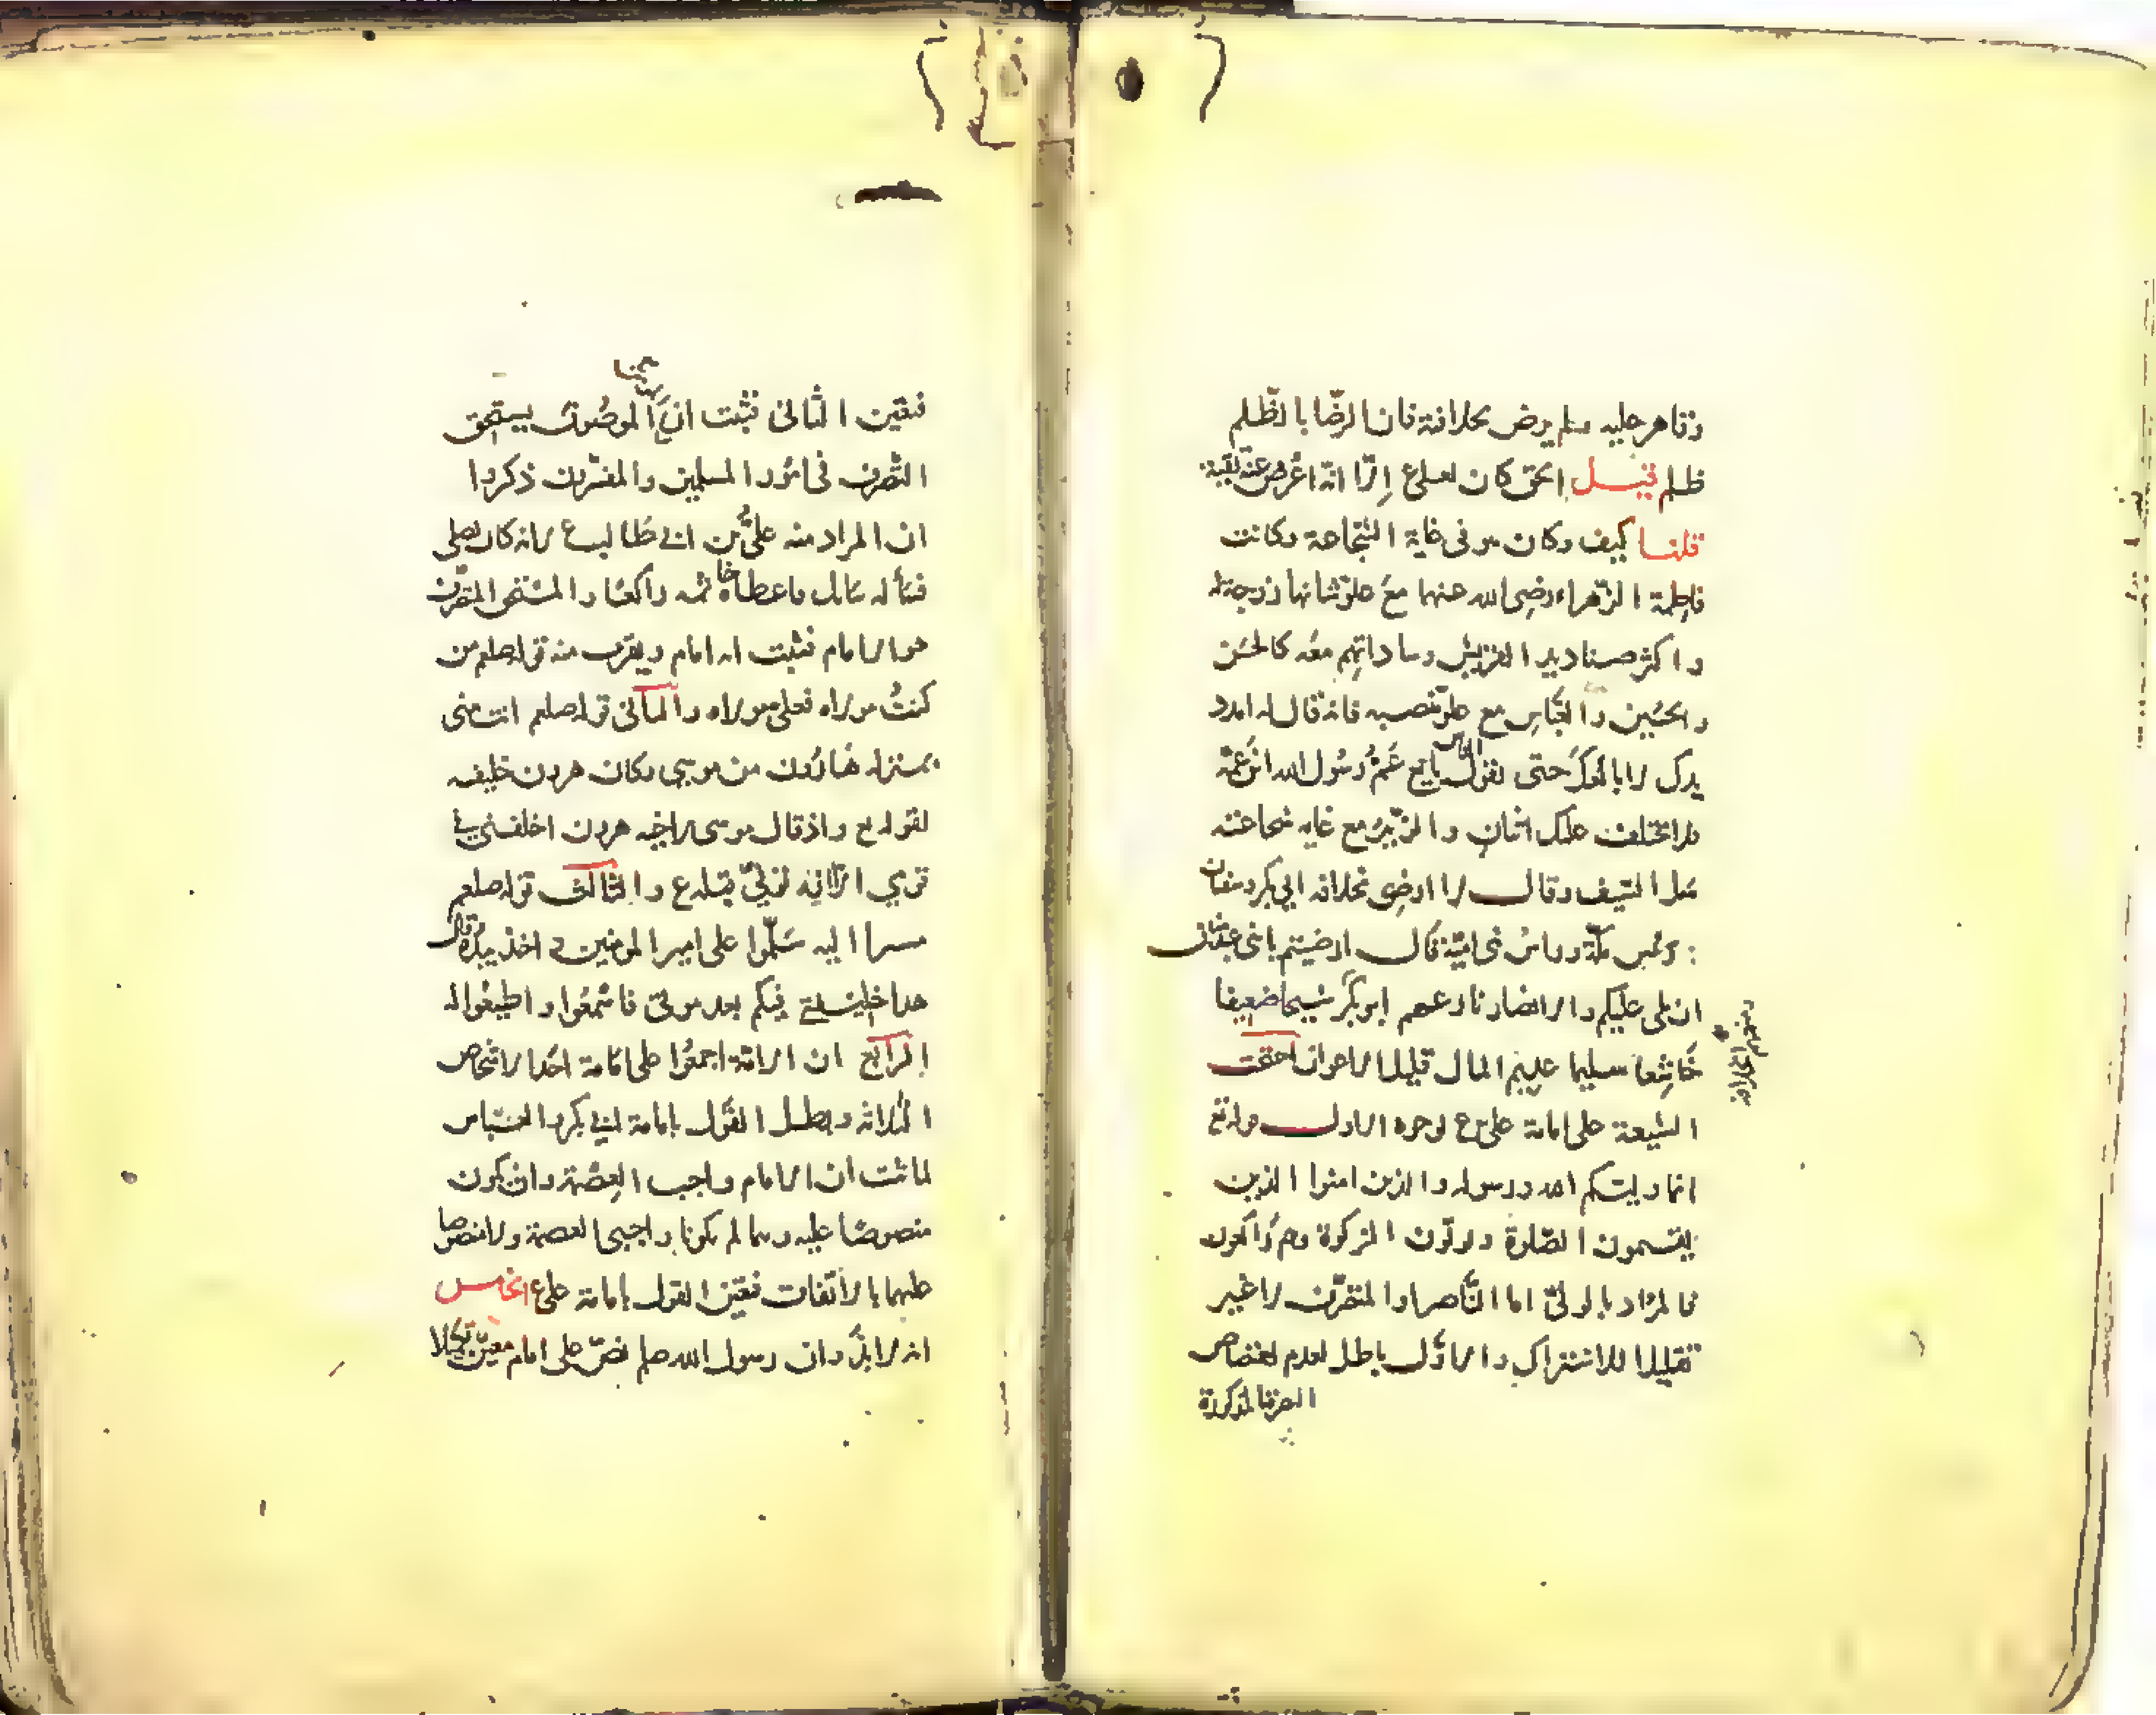 وتناهر عليه ولم يرض بخلافته فان الرضا بالظلم
ظلم قيل الحق كان لعلي ع الا انه اعرض عنه تقية
قلنا كيف وكان هو فى غاية الشجاعة وكانت
فاطمة الزهراء رضى الله عنها مع علو شانها زوجة له
واكثر صناديد القريش وساداتهم معه كالحسن
والحسين والعباس مع علو منصبه فانه قال له امدد
يدك لابايعك حتى يقول الناس بايع عم رسول الله ابن عمه
فلا يختلف عليك اثنان والزبير مع غايه شجاعته
سل السيف وقال لا ارضى بخلافه ابي بكر وسفيان
رئيس مكة وراس بنى امية قال ارضيتم يا بنى عبد مناف
ان يلى عليكم والانصار نازعهم ابو بكر شيخا ضعيفا
ومنعهم الخلافة
خاشعا سليما عديم المال قليل الاعوان احتجت
الشيعة على امامة علي ع لوجوه الاول قوله تع
انما وليكم الله ورسوله والذين امنوا الذين
يقيمون الصلوة ويوتون الزكوة وهم راكعون
فالمراد بالولي اما الناصر او المتصرف لا غير
تقليلا للاشتراك والاول باطل لعدم اختصاص
النصرة المذكورة
فتعين الثانى فثبت ان الموصوف يستحق
التصرف فى امور المسلمين والمفسرين ذكروا
ان المراد منه علي بن ابى طالب ع لانه كان يصلى
فسأله سائل فاعطاه خاتمه راكعا والمستحق المتصرف
هو الامام فثبت انه امام ويقرب منه قوله صلعم من
كنت مولاه فعلى مولاه والثانى قوله صلعم انت منى
بمنزلة هارون من موسى وكان هرون خليفه
لقوله تع واذ قال موسى لاخيه هرون اخلفنى فى
قومي الا انه توفى قبله ع والثالث قوله صلعم
اليه سلموا على امير المومنين و اخذ بيده وقال
هذا خليفتى فيكم بعد موتى فاسمعوا واطيعوا له
الرابع ان الامة اجمعوا على امامة احد الاشخاص
الثلاثه وبطل القول بامامة ابى بكر والعباس
لما ثبت ان الامام واجب العصمة وان يكون
منصوصا عليه وهما لم يكونا واجبى العصمة ولا منصوصا
عليهما بالاتفاق فتعين القول بامامة علي ع الخامس
انه لا بد وان رسول الله صلعم نص على امام معين تكميلا